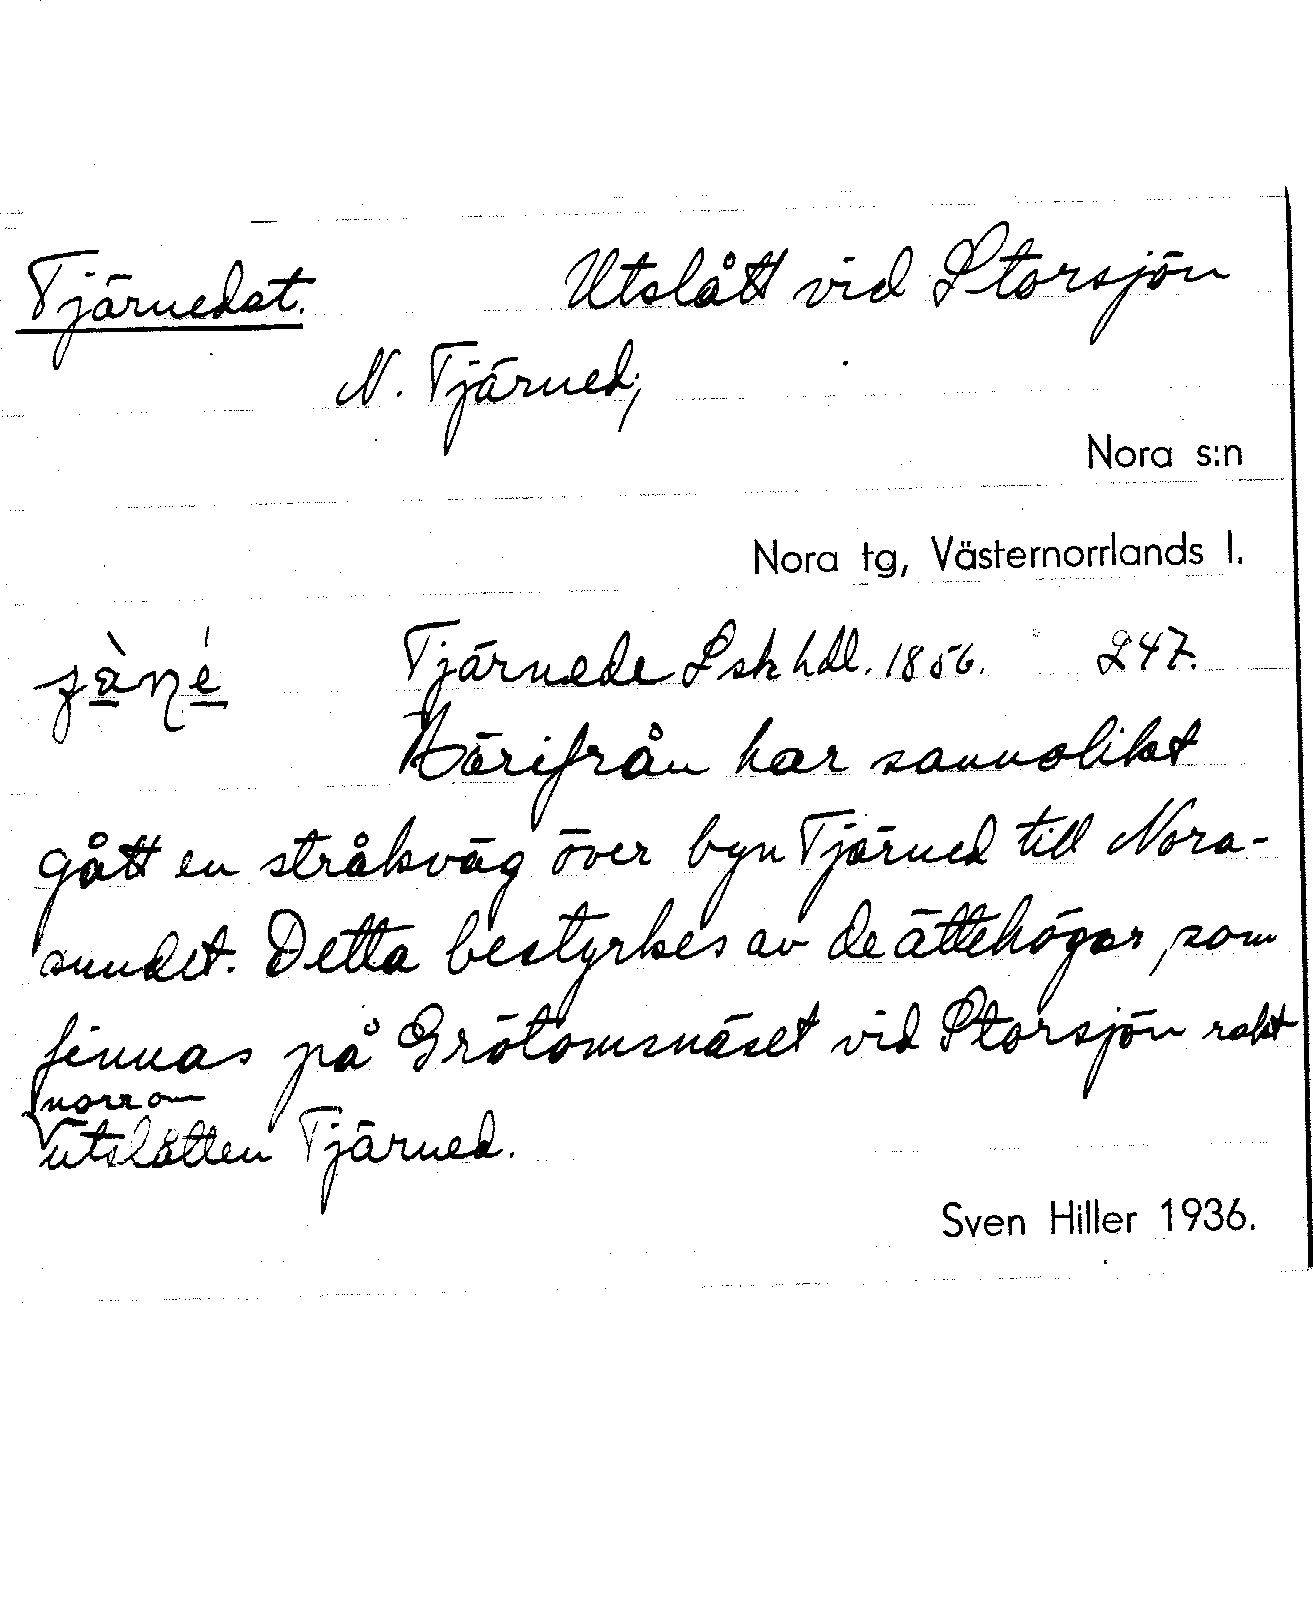 Tjärnedet. Utslått vid Storsjön
N. Tjärned;
Nora s:n
Nora tg, Västernorrlands l.
Tjärnede Lsk hdl. 1856. 247.
Härifrån har sannolikt
gått en stråkväg över byn Tjärned till Nora-
sundet. Detta bestyrkes av de ättehögar, som
finnas på Grötomsnäset vid Storsjön rakt
norr om
utslåtten Tjärned.
Sven Hiller 1936.